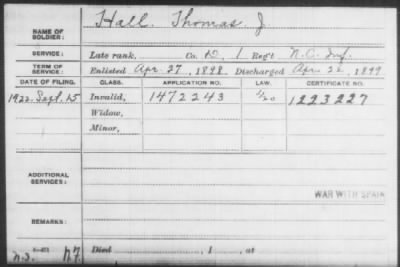 NAME OF SOLDIER: Hall, Thomas J.
SERVICE: Late rank, Co. D, 1 Reg't N.C. Inf.
TERM OF SERVICE: Enlisted Apr. 27, 1898. Discharged Apr. 22, 1899
DATE OF FILING. CLASS. APPLICATION NO. LAW. CERTIFICATE NO.
1922. Sept. 15 Invalid, 1472243 1223227
Widow,
Minor,
ADDITIONAL SERVICES:
WAR WITH SPAIN
REMARKS:
Died , 1 , at